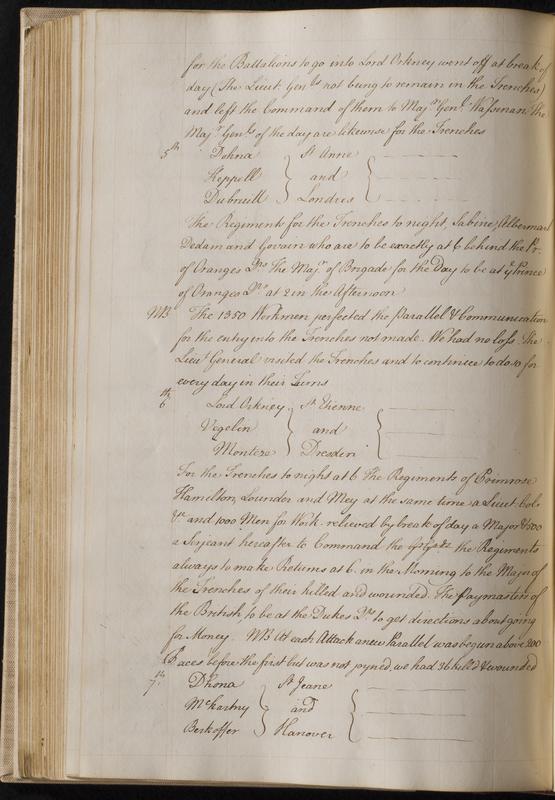 for the Battalions to go into Lord Orkney went off at break of
day (The Lieut. Genls not being to remain in the Trenches)
and left the Command of them to Majr Genl Wassenan The
Majr Genls of the day are likewise for the Trenches
5th Dohna St Anne
Keppell and
Dubruill Londres
The Regiments for the Trenches to night, Sabine, Alberman
Dedam and Govain who are to be exactly at 6 behind the Pr.
of Oranges Qrs The Majr of Brigade for the Day to be at ye Prince
of Oranges Qrs at 2 in the Afternoon
NB The 1350 Workmen perfected the Parallel & Communication
for the entry into the Trenches not made. We had no loss. The
Lieut General visited the Trenches and to continue to do so for
every day in their Turns
6th Lord Orkney St Etienne
Vegelin and
Monteze Dresden
For the Trenches to night at 6 the Regiments of Primrose
Hamilton, Lounder and Mey at the same time a Lieut Col.
and 1000 Men for Work relieved by break of day a Major & 500
a Serjeant hereafter to Command the the Regiments
always to make Returns at 6 in the Morning to the Major of
the Trenches of their killed and wounded. The Paymaster of
the British to be at the Dukes Qrs to get directions about going
for Money. NB At each Attack a new Parallel was begun above 200
Paces before the first but was not joyned, we had 36 killd & wounded
7th Dhona St Jeane
McKartny and
Berkoffer Hanover